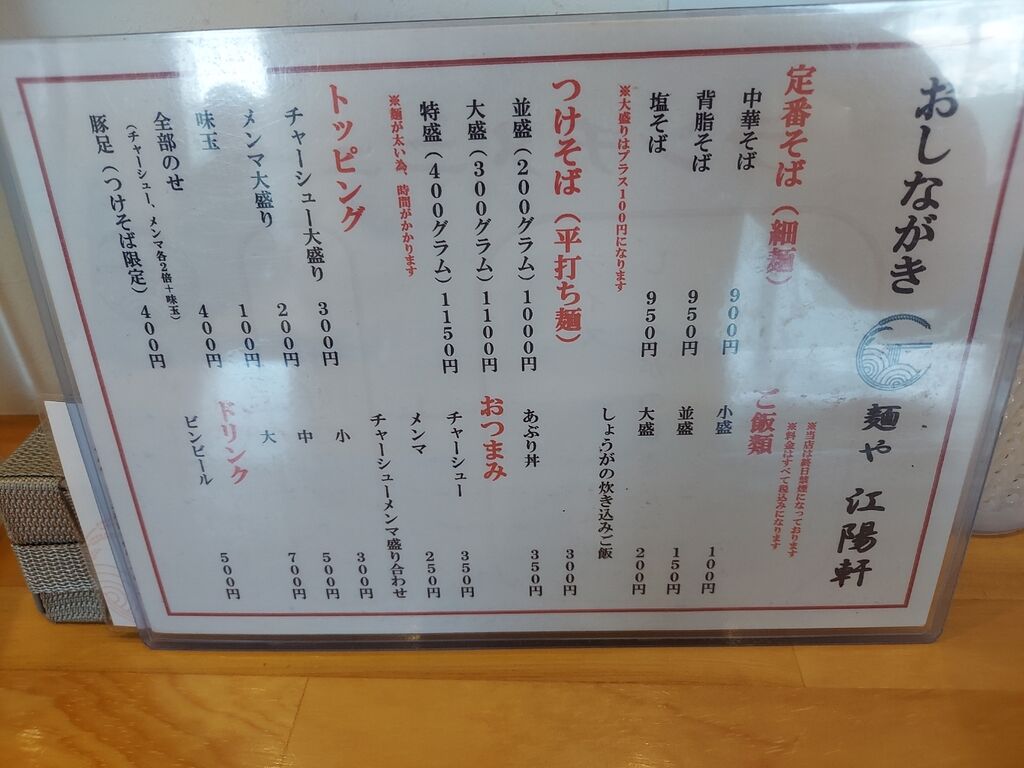 おしながき 麺や 江陽軒
※当店は終日禁煙になっております
※料金はすべて税込みになります
定番そば（細麺）
中華そば 900円
背脂そば 950円
塩そば 950円
※大盛りはプラス100円になります
つけそば（平打ち麺）
並盛（200グラム）1000円
大盛（300グラム）1100円
特盛（400グラム）1150円
※麺が太い為、時間がかかります
トッピング
チャーシュー大盛り 300円
メンマ大盛り 200円
味玉 100円
全部のせ 400円
（チャーシュー、メンマ各2倍＋味玉）
豚足（つけそば限定）400円
ご飯類
小盛 100円
並盛 150円
大盛 200円
しょうがの炊き込みご飯 300円
あぶり丼 350円
おつまみ
チャーシュー 350円
メンマ 250円
チャーシューメンマ盛り合わせ
小 300円
中 500円
大 700円
ドリンク
ビンビール 500円